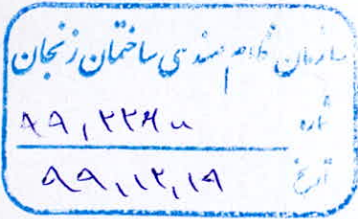 سازمان نظام مهندسی ساختمان زنجان
شماره
تاریخ ۹۹,۱۲,۱۹